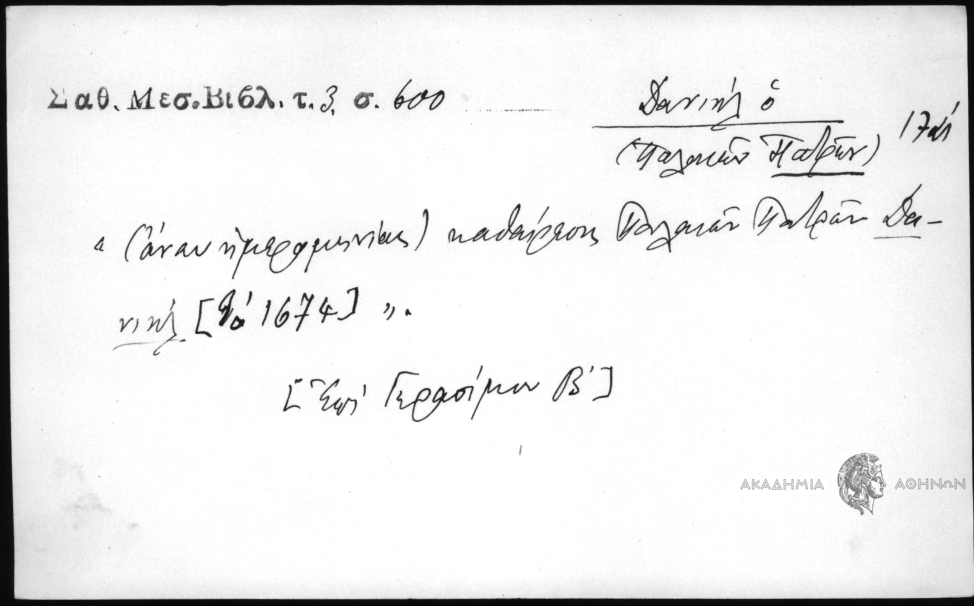 Σαθ. Μεσ. Βιβλ. τ. 3, σ. 600
Δανιήλ ὁ
(Παλαιῶν Πατρῶν)
« (ἄνευ ἡμερομηνίας) καθαίρεσις Παλαιῶν Πατρῶν Δα-
νιήλ [τὸ 1674] ».
[Ἐπὶ Γερασίμου Β']
ΑΚΑΔΗΜΙΑ ΑΘΗΝΩΝ